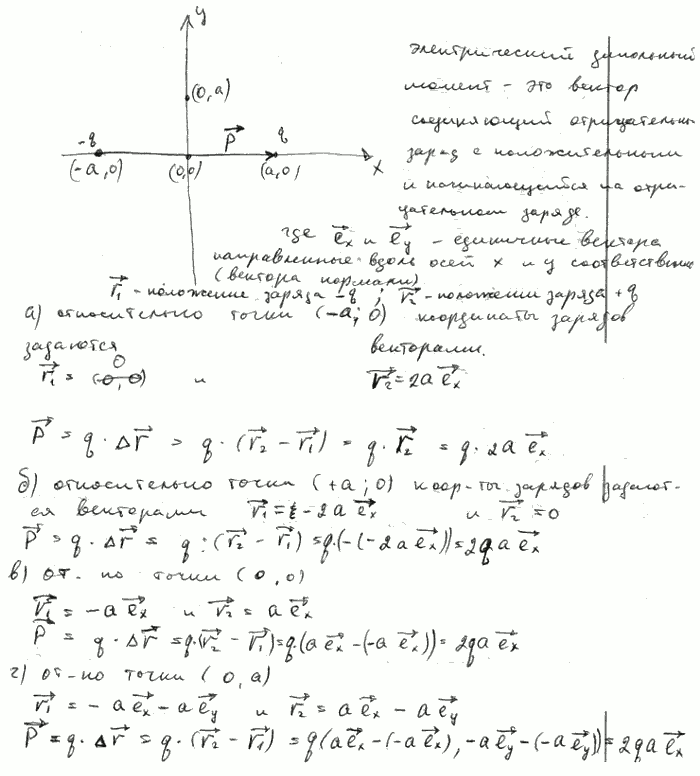 y
(0,a)
-q
P⃗
q
(-a,0)
(0,0)
(a,0)
x
Электрический дипольный
момент - это вектор
соединяющий отрицательн
заряд с положительным
и начинающийся на отри-
цательном заряде.
где e⃗x и e⃗y - единичные вектора
направленные вдоль осей x и y соответственно
(вектора нормали)
r⃗1 - положение заряда -q ; r⃗2 - положении заряда +q
а) относительно точки (-a; 0) координаты зарядов
задаются векторами.
r⃗1 = 0 и r⃗2 = 2a e⃗x
P⃗ = q · Δr⃗ = q · (r⃗2 - r⃗1) = q · r⃗2 = q · 2a e⃗x
б) относительно точки (+a; 0) коор-ты зарядов задают-
ся векторами r⃗1 = -2a e⃗x и r⃗2 = 0
P⃗ = q · Δr⃗ = q · (r⃗2 - r⃗1) = q · (-(-2a e⃗x)) = 2qa e⃗x
в) от.-но точки (0,0)
r⃗1 = -a e⃗x и r⃗2 = a e⃗x
P⃗ = q · Δr⃗ = q·(r⃗2 - r⃗1) = q·(a e⃗x - (-a e⃗x)) = 2qa e⃗x
г) от-но точки (0, a)
r⃗1 = -a e⃗x - a e⃗y и r⃗2 = a e⃗x - a e⃗y
P⃗ = q · Δr⃗ = q · (r⃗2 - r⃗1) = q(a e⃗x - (-a e⃗x), -a e⃗y - (-a e⃗y)) = 2qa e⃗x